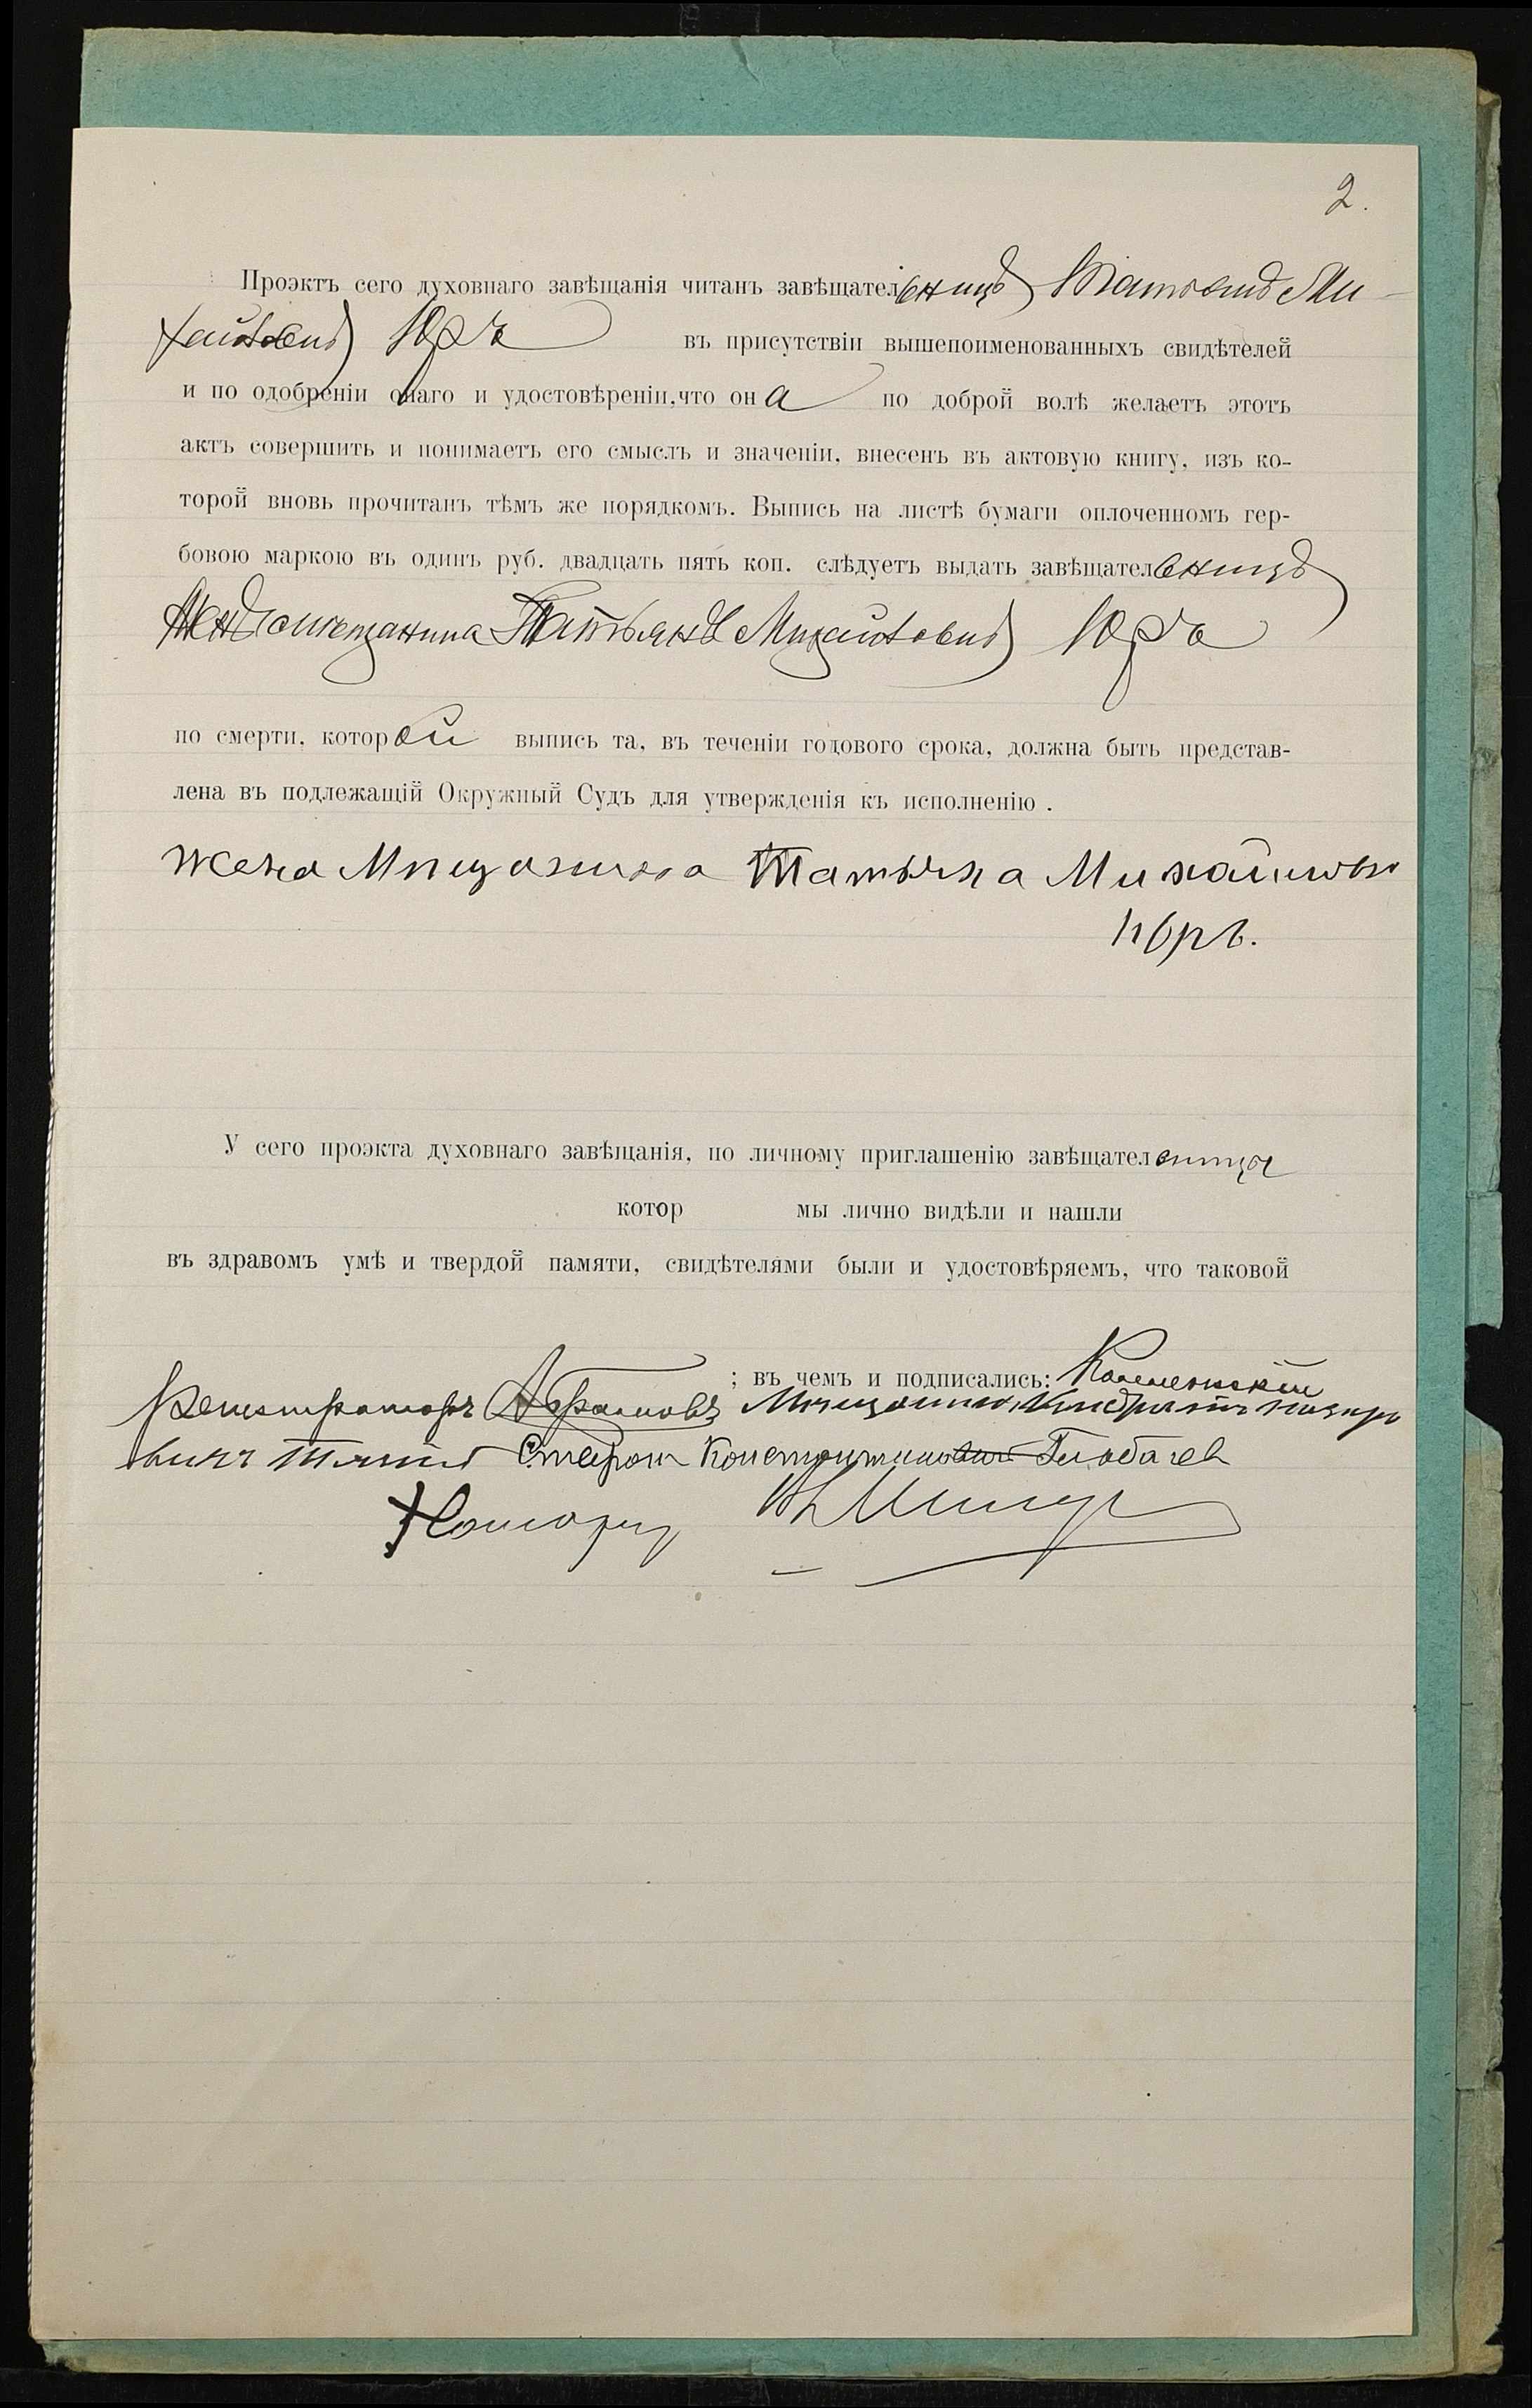 2.
Проэктъ сего духовнаго завѣщанія читанъ завѣщательницѣ Татьянѣ Ми-
хайловнѣ Юръ въ присутствіи вышепоименованныхъ свидѣтелей
и по одобреніи онаго и удостовѣреніи, что она по доброй волѣ желаетъ этотъ
актъ совершить и понимаетъ его смыслъ и значеніи, внесенъ въ актовую книгу, изъ ко-
торой вновь прочитанъ тѣмъ же порядкомъ. Выпись на листѣ бумаги оплоченномъ гер-
бовою маркою въ одинъ руб. двадцать пять коп. слѣдуетъ выдать завѣщательницѣ
женѣ мѣщанина Татьянѣ Михайловнѣ Юръ
по смерти, которой выпись та, въ теченіи годового срока, должна быть представ-
лена въ подлежащій Окружный Судъ для утвержденія къ исполненію .
жена Мищанина Татьяна Михайловна
Юръ.
У сего проэкта духовнаго завѣщанія, по личному приглашенію завѣщателницы
котор мы лично видѣли и нашли
въ здравомъ умѣ и твердой памяти, свидѣтелями были и удостовѣряемъ, что таковой
; въ чемъ и подписались: Коллежскій
Регистраторъ Абрамовъ Мѣщанинъ
Константиновичъ
Нотаріусъ